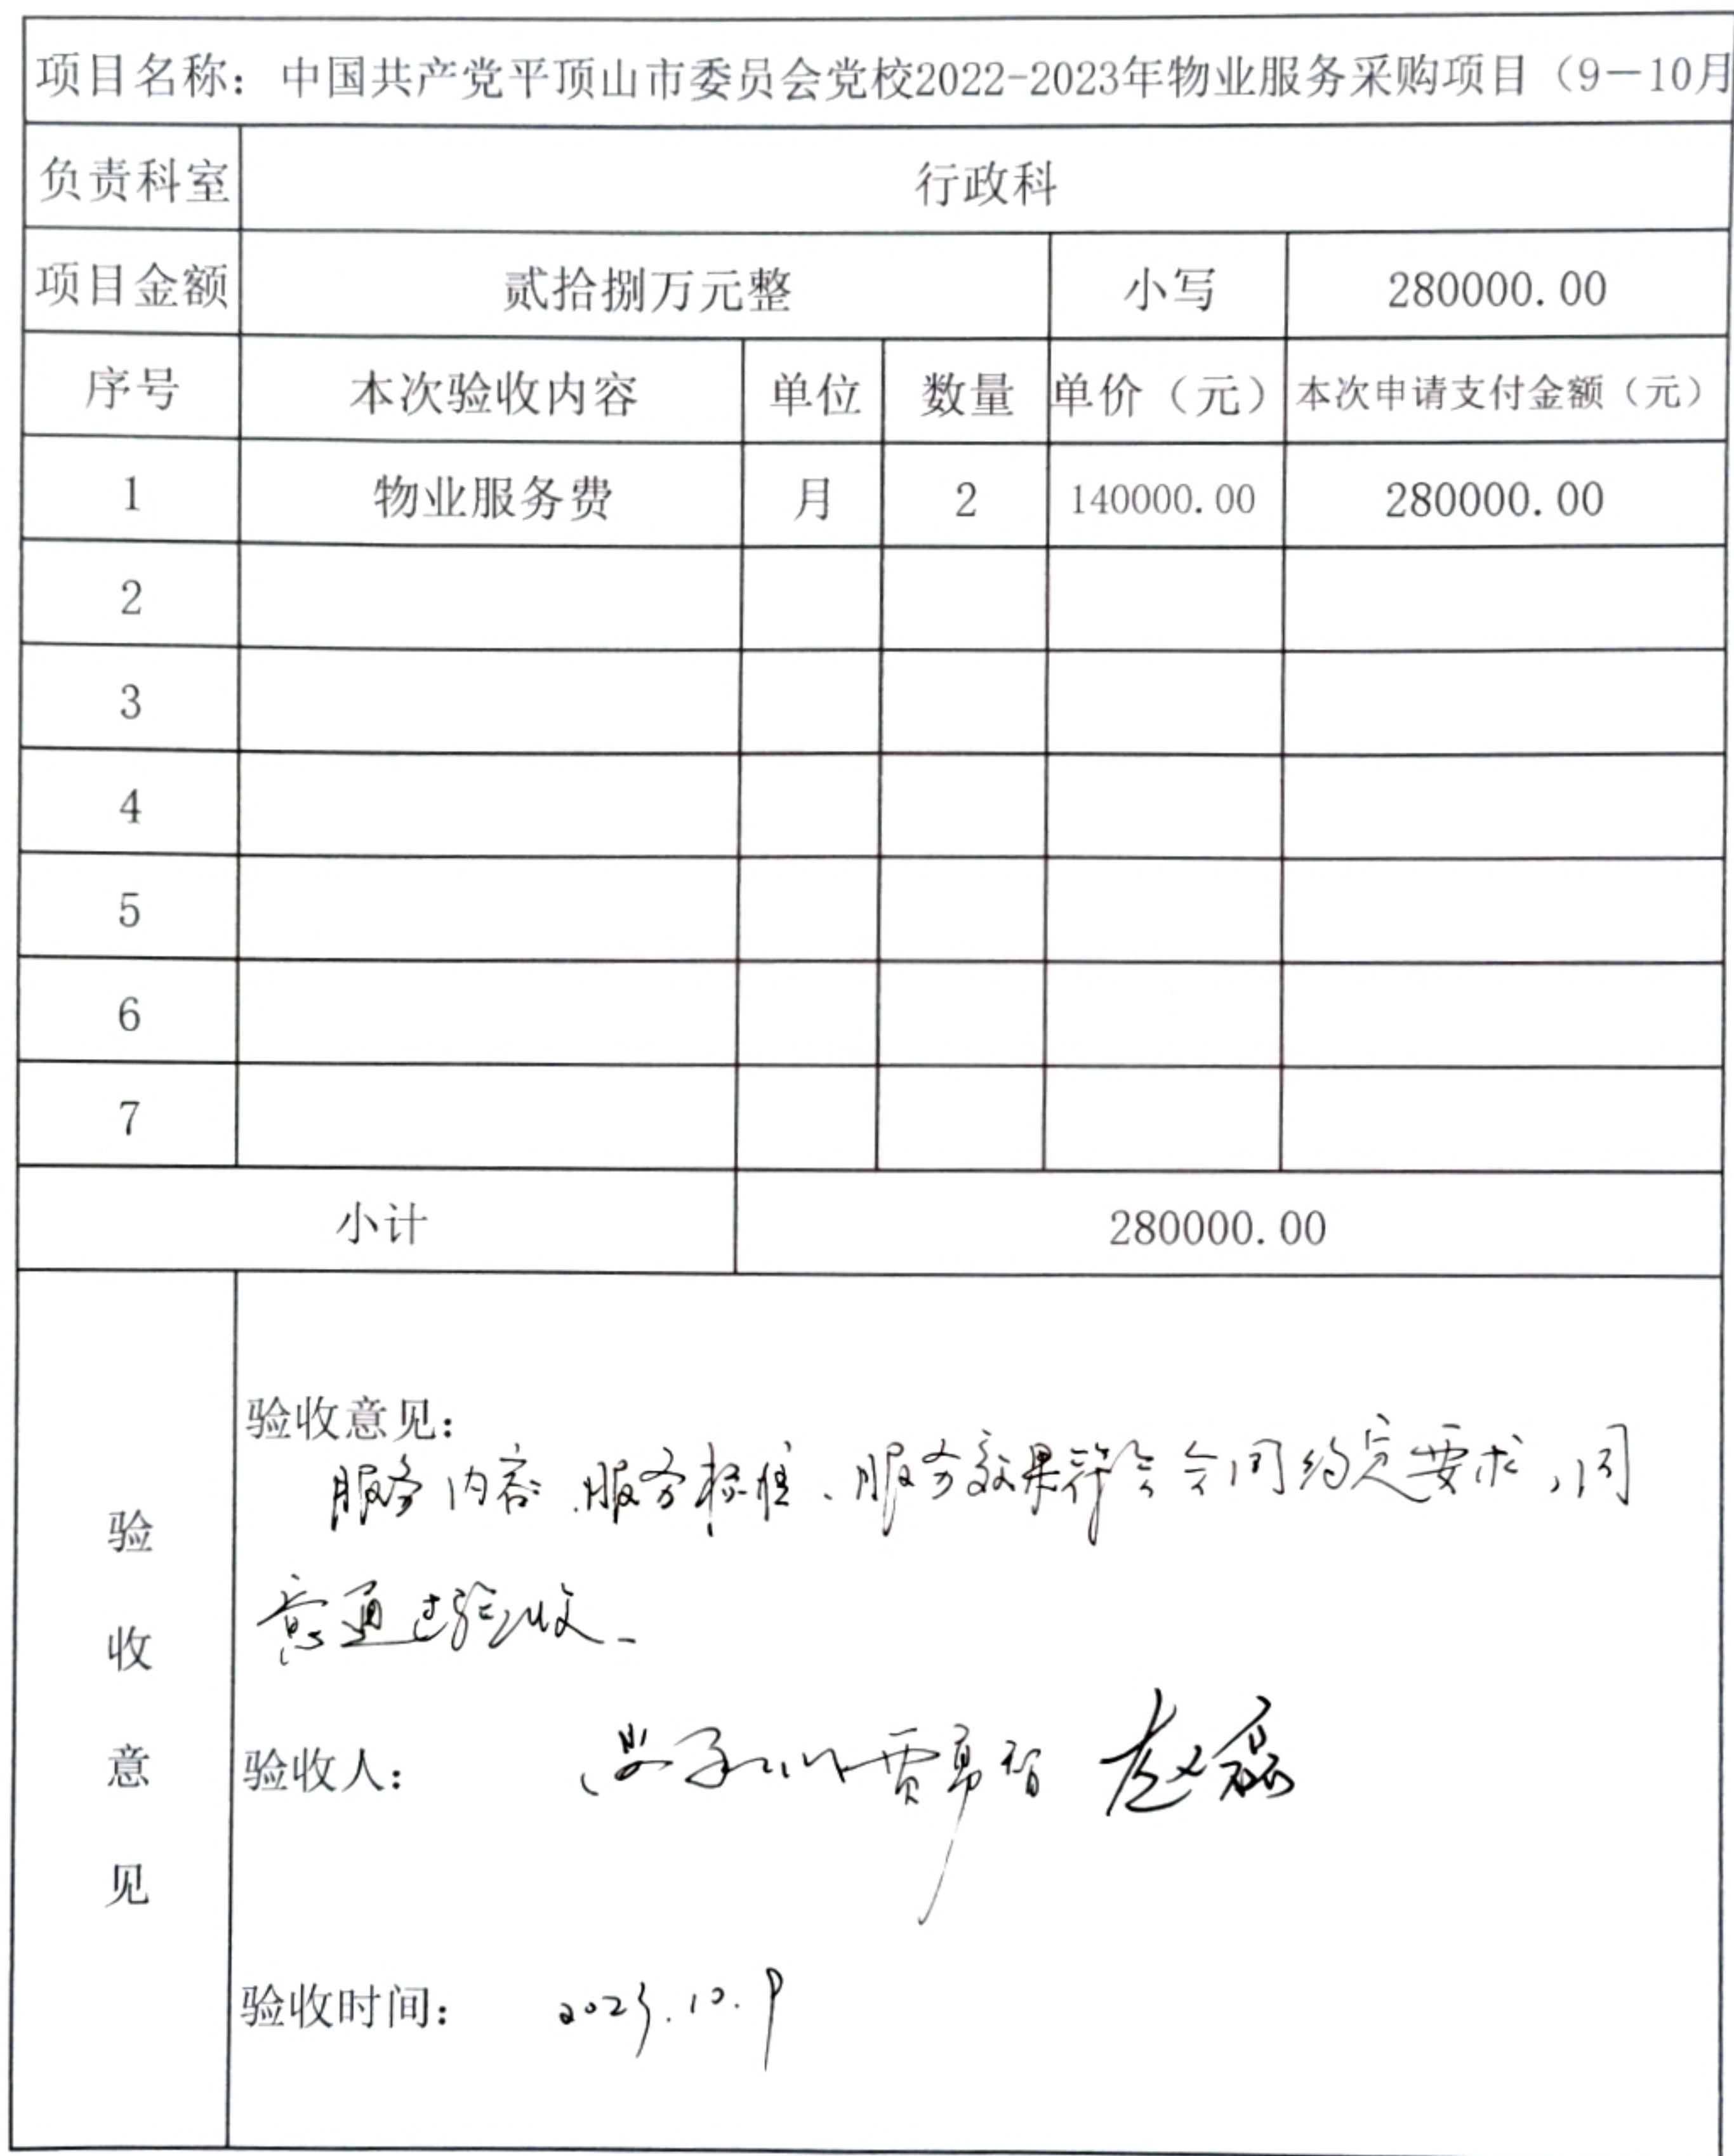 项目名称：中国共产党平顶山市委员会党校2022-2023年物业服务采购项目（9—10月
负责科室 行政科
项目金额 贰拾捌万元整 小写 280000.00
序号 本次验收内容 单位 数量 单价（元） 本次申请支付金额（元）
1 物业服务费 月 2 140000.00 280000.00
2
3
4
5
6
7
小计 280000.00
验收意见
验收意见：
服务内容、服务标准、服务效果符合合同约定要求，同
意通过验收.
验收人： 贾勇智 赵磊
验收时间： 2023.10.9